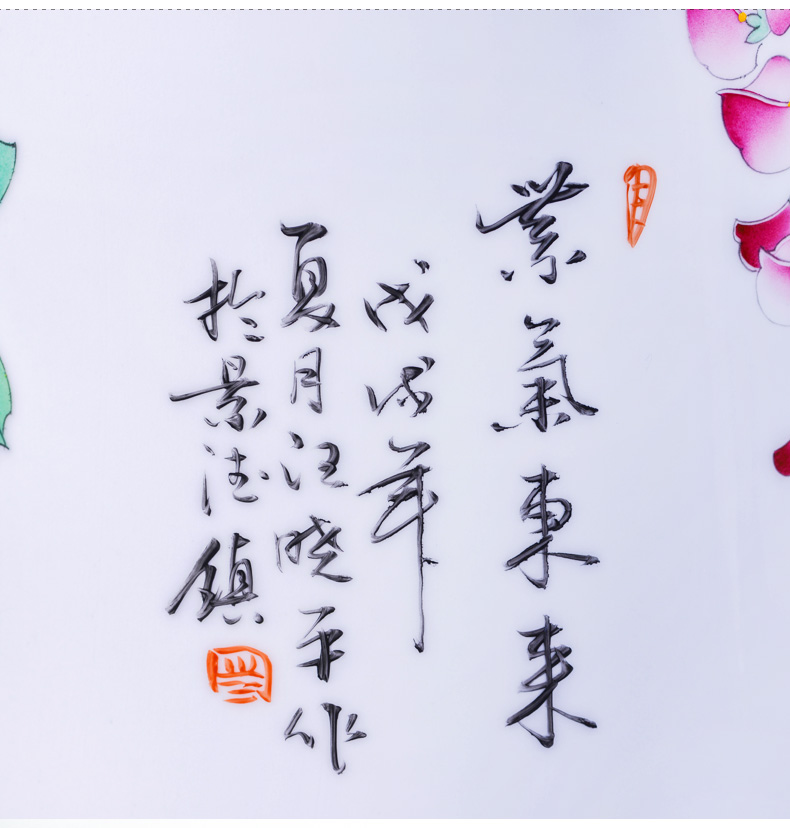 紫氣東来
戊戌年
夏月汪晓平作
於景德鎮